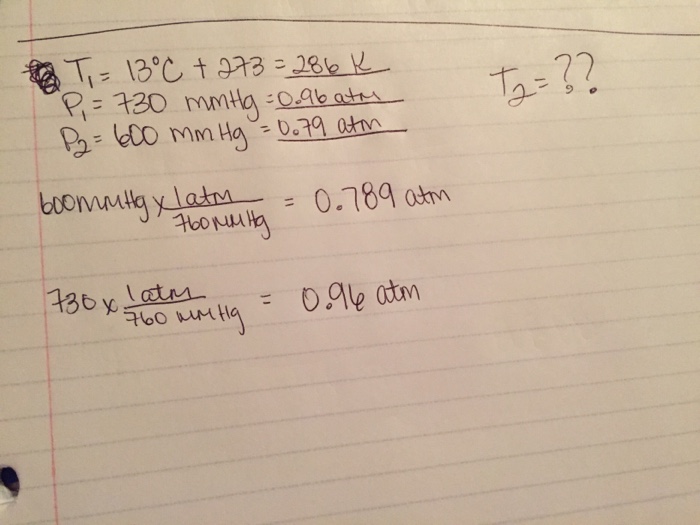 T₁ = 13°C + 273 = 286 K
P₁ = 730 mmHg = 0.96 atm
T₂ = ??
P₂ = 600 mmHg = 0.79 atm
600mmHg x 1atm / 760mmHg = 0.789 atm
730 x 1atm / 760 mmHg = 0.96 atm